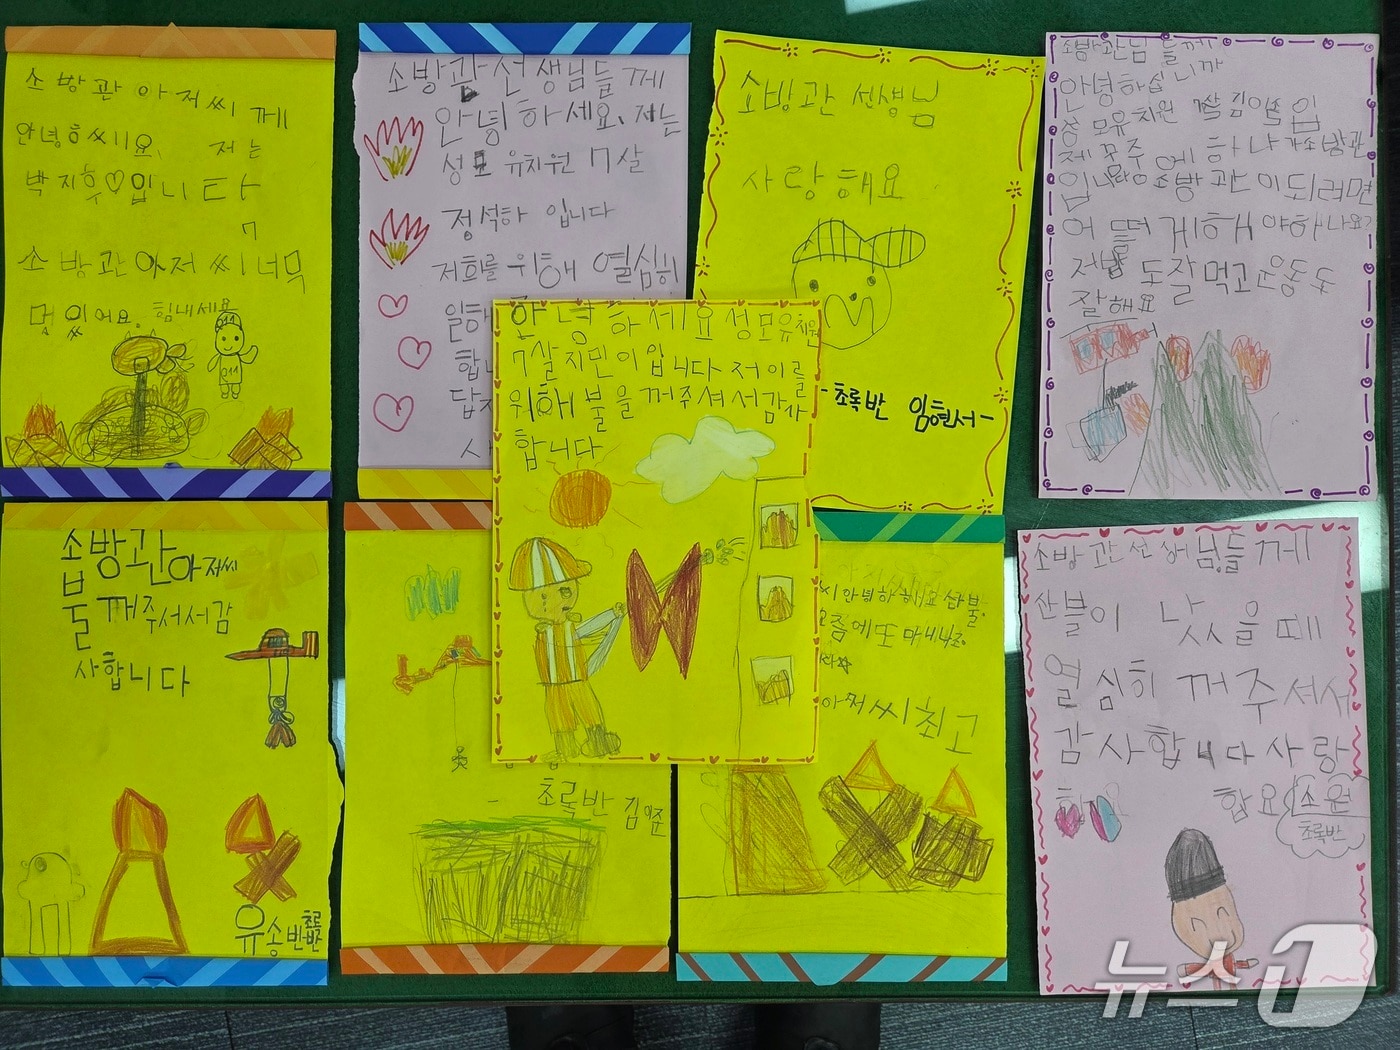 소방관 아저씨 께
안녕하씨네요. 저는
박지후♡입니다
7
소방관아저씨너무
멋있어요. 힘내세요
119
119
소방관선생님들께
안녕하세요. 저는
성모 유치원 7살
정석하 입니다
저희를 위해 열심히
일해
합니
답
사
소방관 선생님
사랑해요
-초록반 임현서-
소방관님 들께
안녕하십니까
성모유치원 7살
제 꿈중에하나가소방관
입니다 소방관이되려면
어떻게해야하나요?
저밥도잘먹고운동도
잘해요
안녕하세요성모유치원
7살지민이입니다저이를
위해불을꺼주셔서감사
합니다
소방관아저씨
불꺼주셔서감
사합니다
유송반초록반
초록반 김
안녕하세요 산불
아저씨최고
소방관선생님들께
산불이 났을때
열심히 꺼주셔서
감사합니다사랑
합 합요 소원
초록반
뉴스1